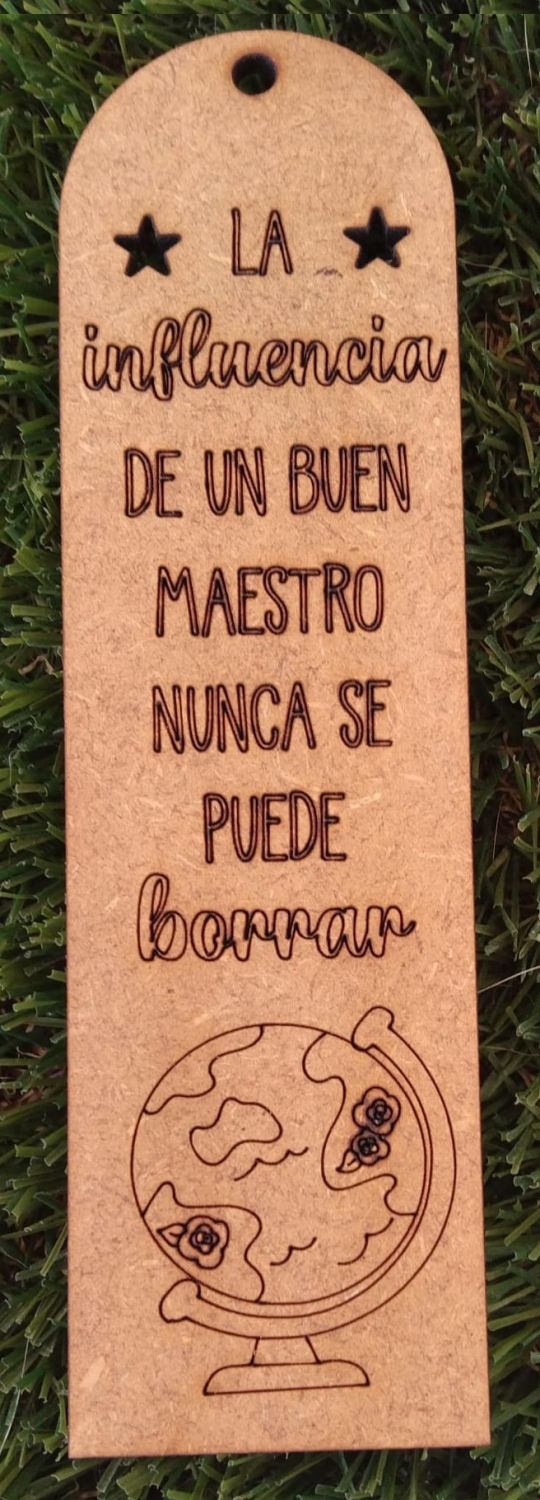 LA
influencia
DE UN BUEN
MAESTRO
NUNCA SE
PUEDE
borrar